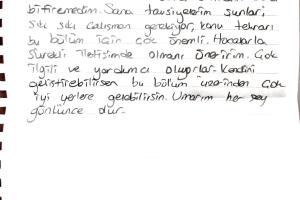 bitiremedim. Sana tavsiyelerim şunlar;
Sıkı sıkı çalışman gerekiyor, konu tekrarı
bu bölüm için çok önemli. Hocalarla
sürekli iletişimde olmanı öneririm. Çok
ilgili ve yardımcı oluyorlar. Kendini
geliştirebilirsen bu bölüm üzerinden çok
iyi yerlere gelebilirsin. Umarım her şey
gönlünce olur.